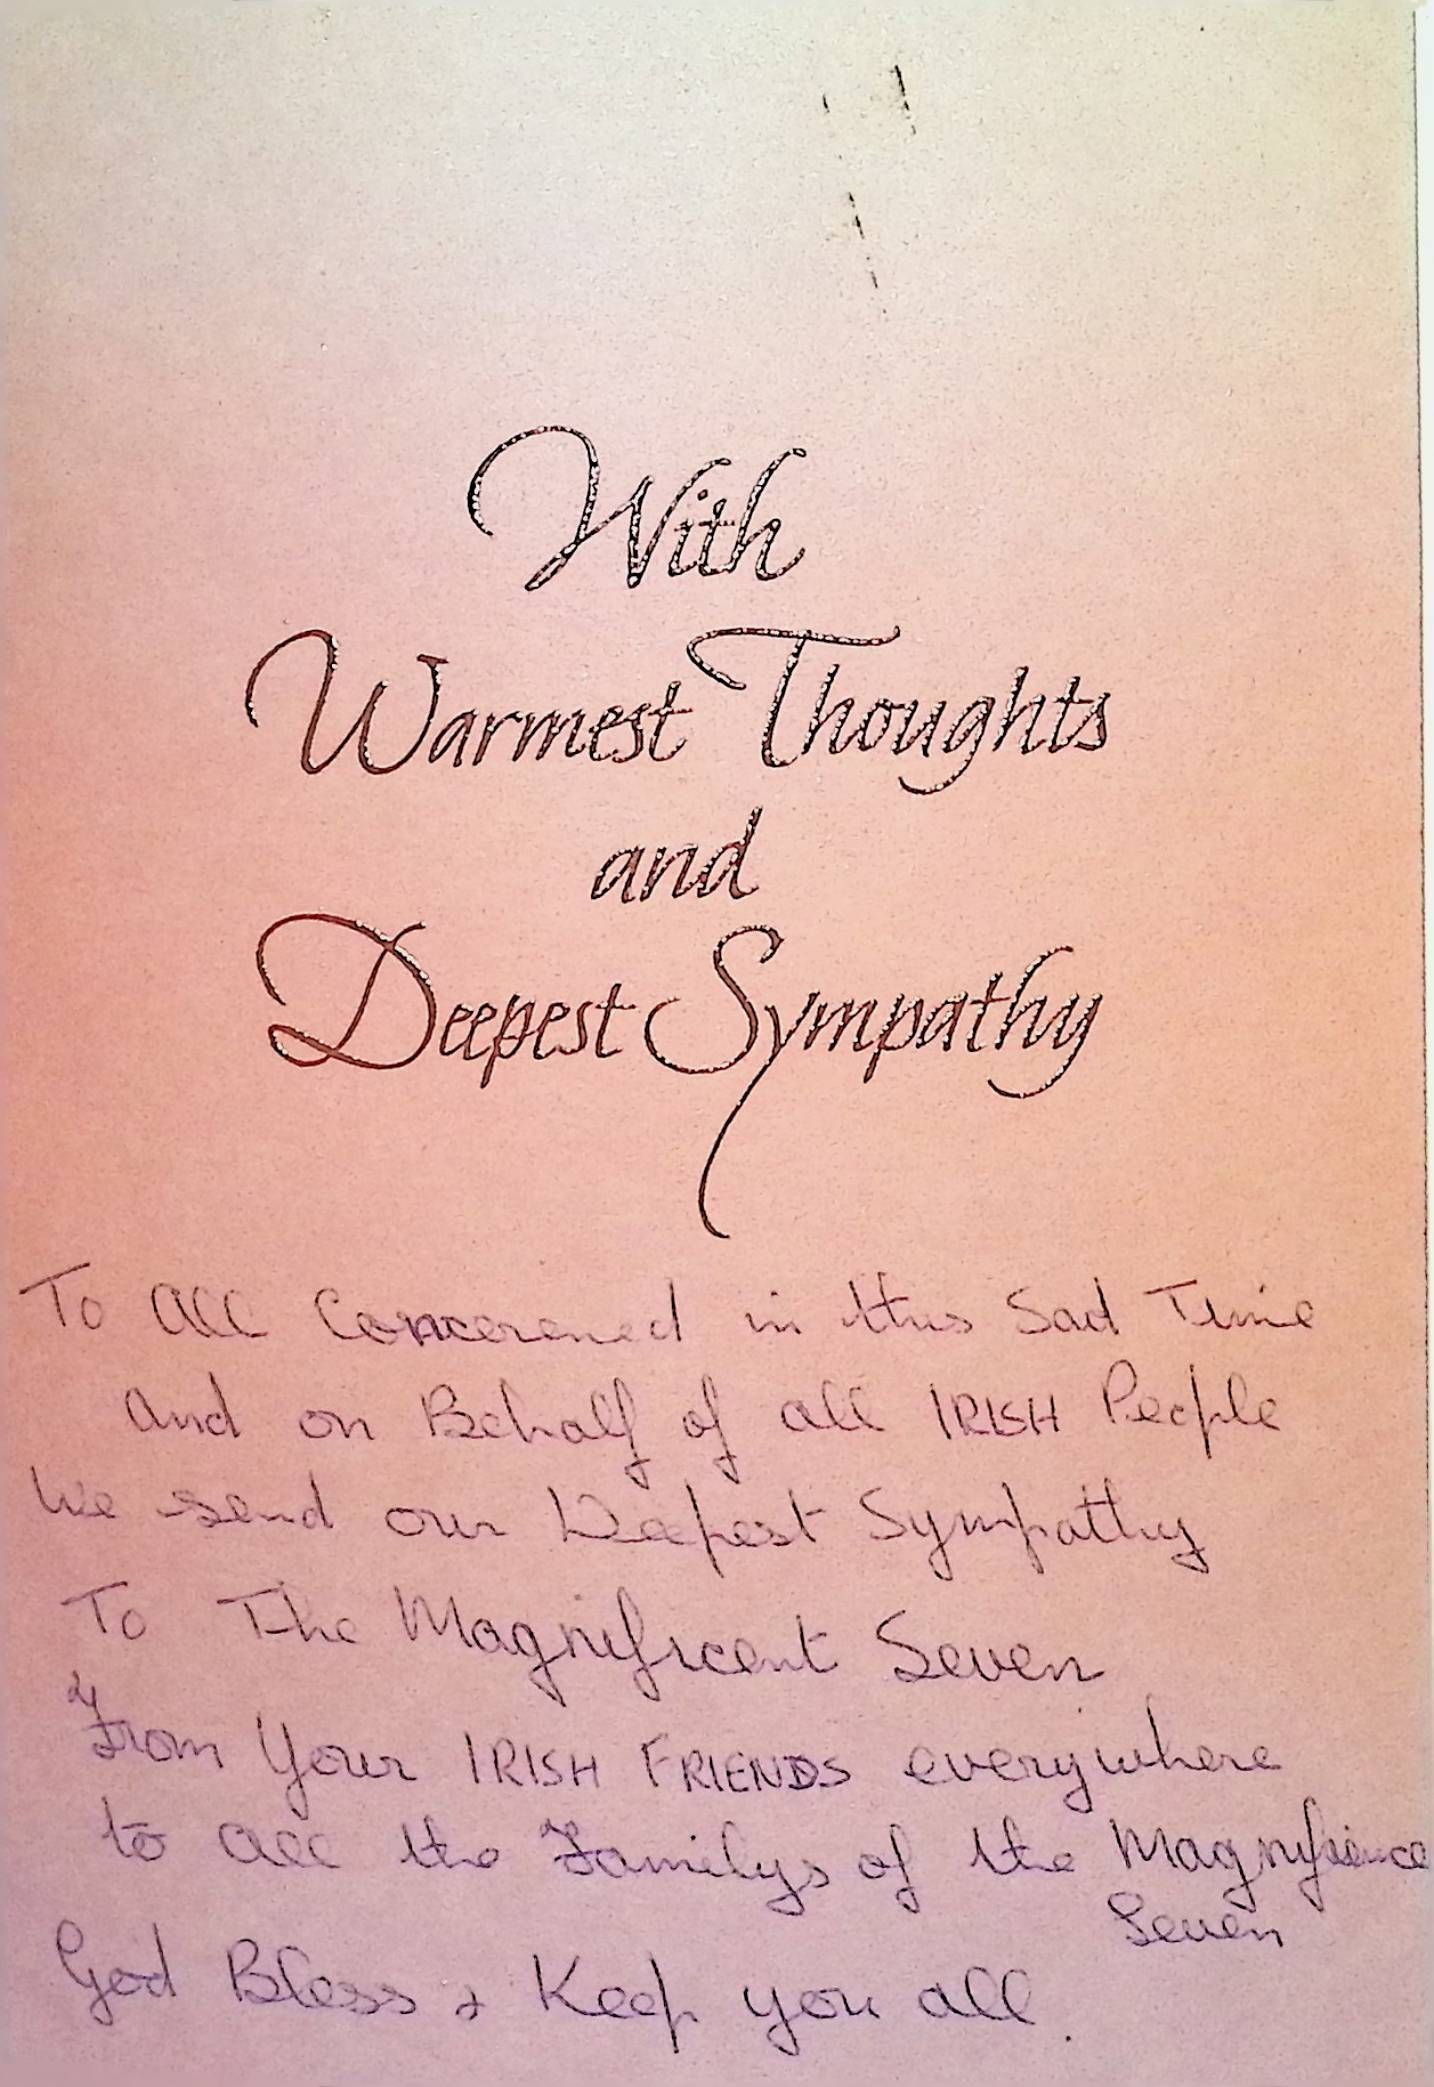 With
Warmest Thoughts
and
Deepest Sympathy
To all Concerened in this Sad Time
and on Behalf of all IRISH People
We send our Deepest Sympathy
To The Magnificent Seven
From Your IRISH FRIENDS everywhere
to all the Familys of the Magnificence
Seven
God Bless & Keep you all.